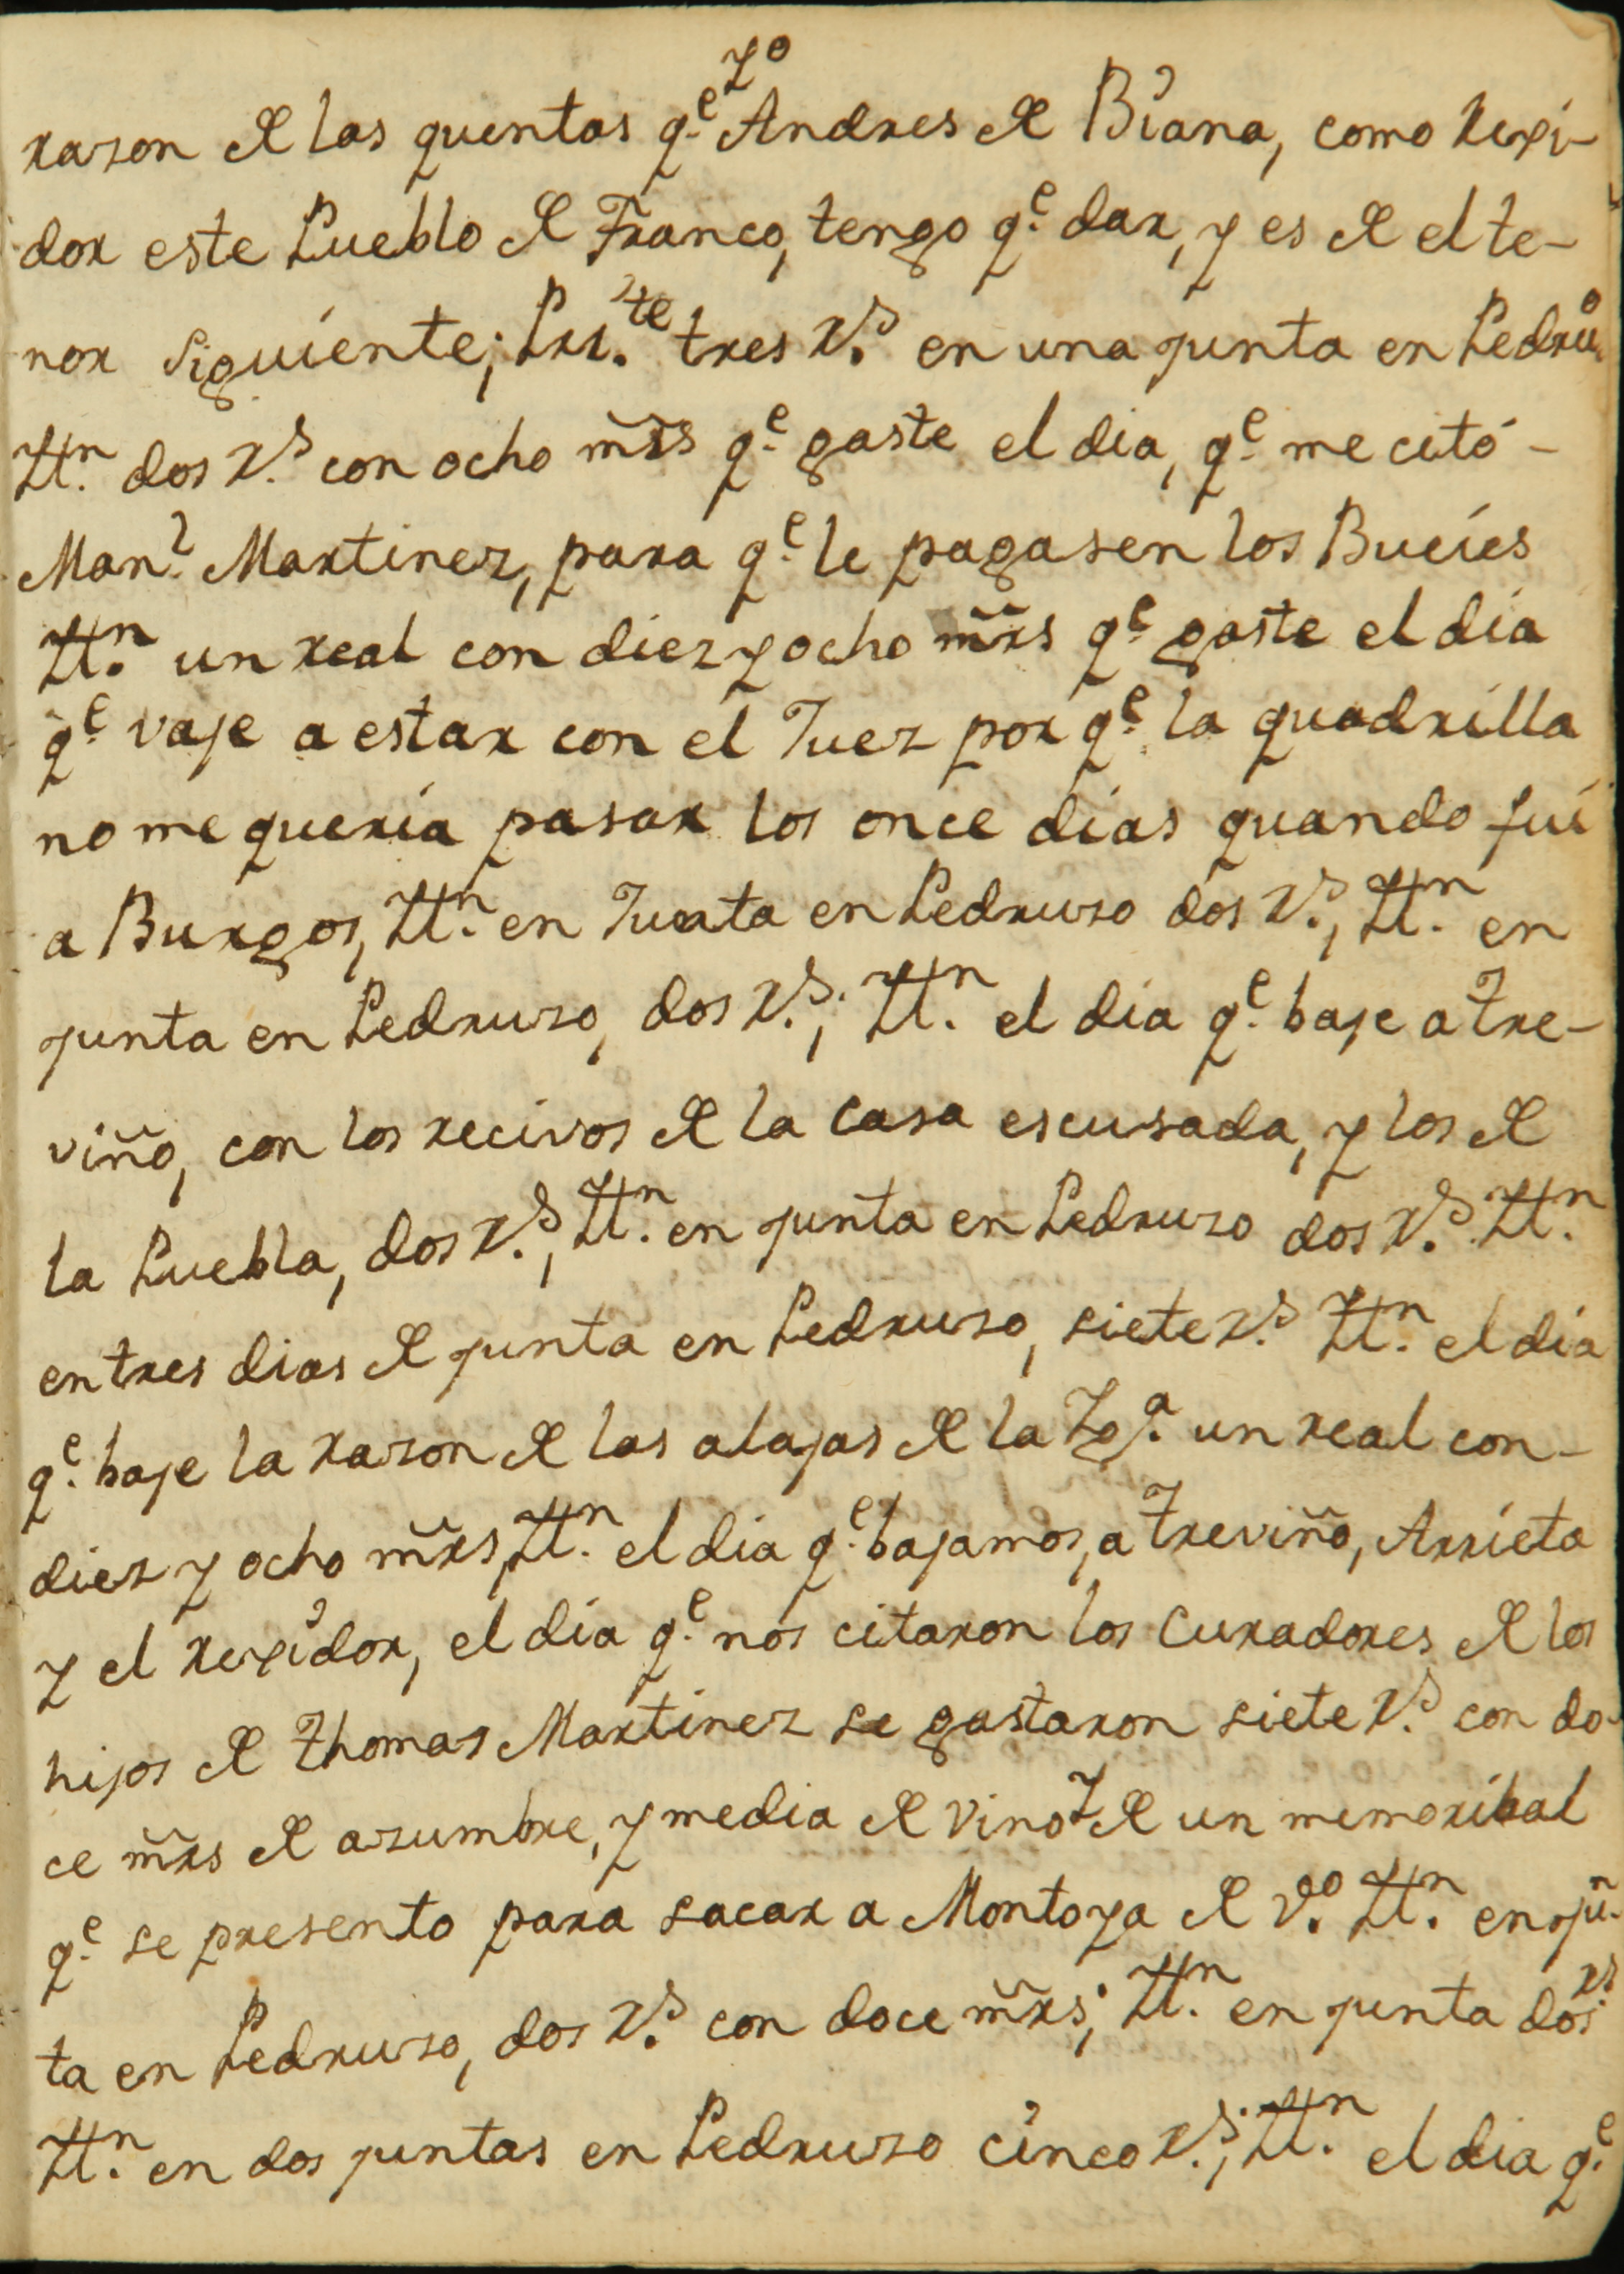 razon de las quentas q.e Yo Andres de Biana, como Rexi-
dor este Pueblo de Franco, tengo q.e dar, y es de el te-
nor siguiente; Pri.te tres R.s en una junta en Pedruo
Ytt.n dos R.s con ocho mrs q.e gaste el dia, q.e me citó -
Man.l Martinez, para q.e le pagasen los Bueies
Ytt.n un real con diez y ocho mrs q.e gaste el dia
q.e vaje a estar con el Juez por q.e la quadrilla
no me queria pasar los once dias quando fui
a Burgos, Ytt.n en Junta en Pedruzo dos R.s, Ytt.n en
junta en Pedruzo, dos R.s; Ytt.n el dia q.e baje a Tre-
viño, con los recivos de la casa escusada, y los de
la Puebla, dos R.s, Ytt.n en junta en Pedruzo dos R.s Ytt.n
en tres dias de junta en Pedruzo, siete R.s Ytt.n el dia
q.e baje la razon de las alajas de la Yg.a un real con -
diez y ocho mrs, Ytt.n el dia q.e bajamos, a Treviño, Arrieta
y el rexidor, el dia q.e nos citaron los Curadores de los
hijos de Thomas Martinez se gastaron siete R.s con do-
ce mrs de azumbre, y media de vino Y de un memorial
q.e se presento para sacar a Montoya de v.o Ytt.n en jun-
ta en Pedruzo, dos R.s con doce mrs; Ytt.n en junta dos rs
Ytt.n en dos juntas en Pedruzo cinco R.s; Ytt.n el dia q.e